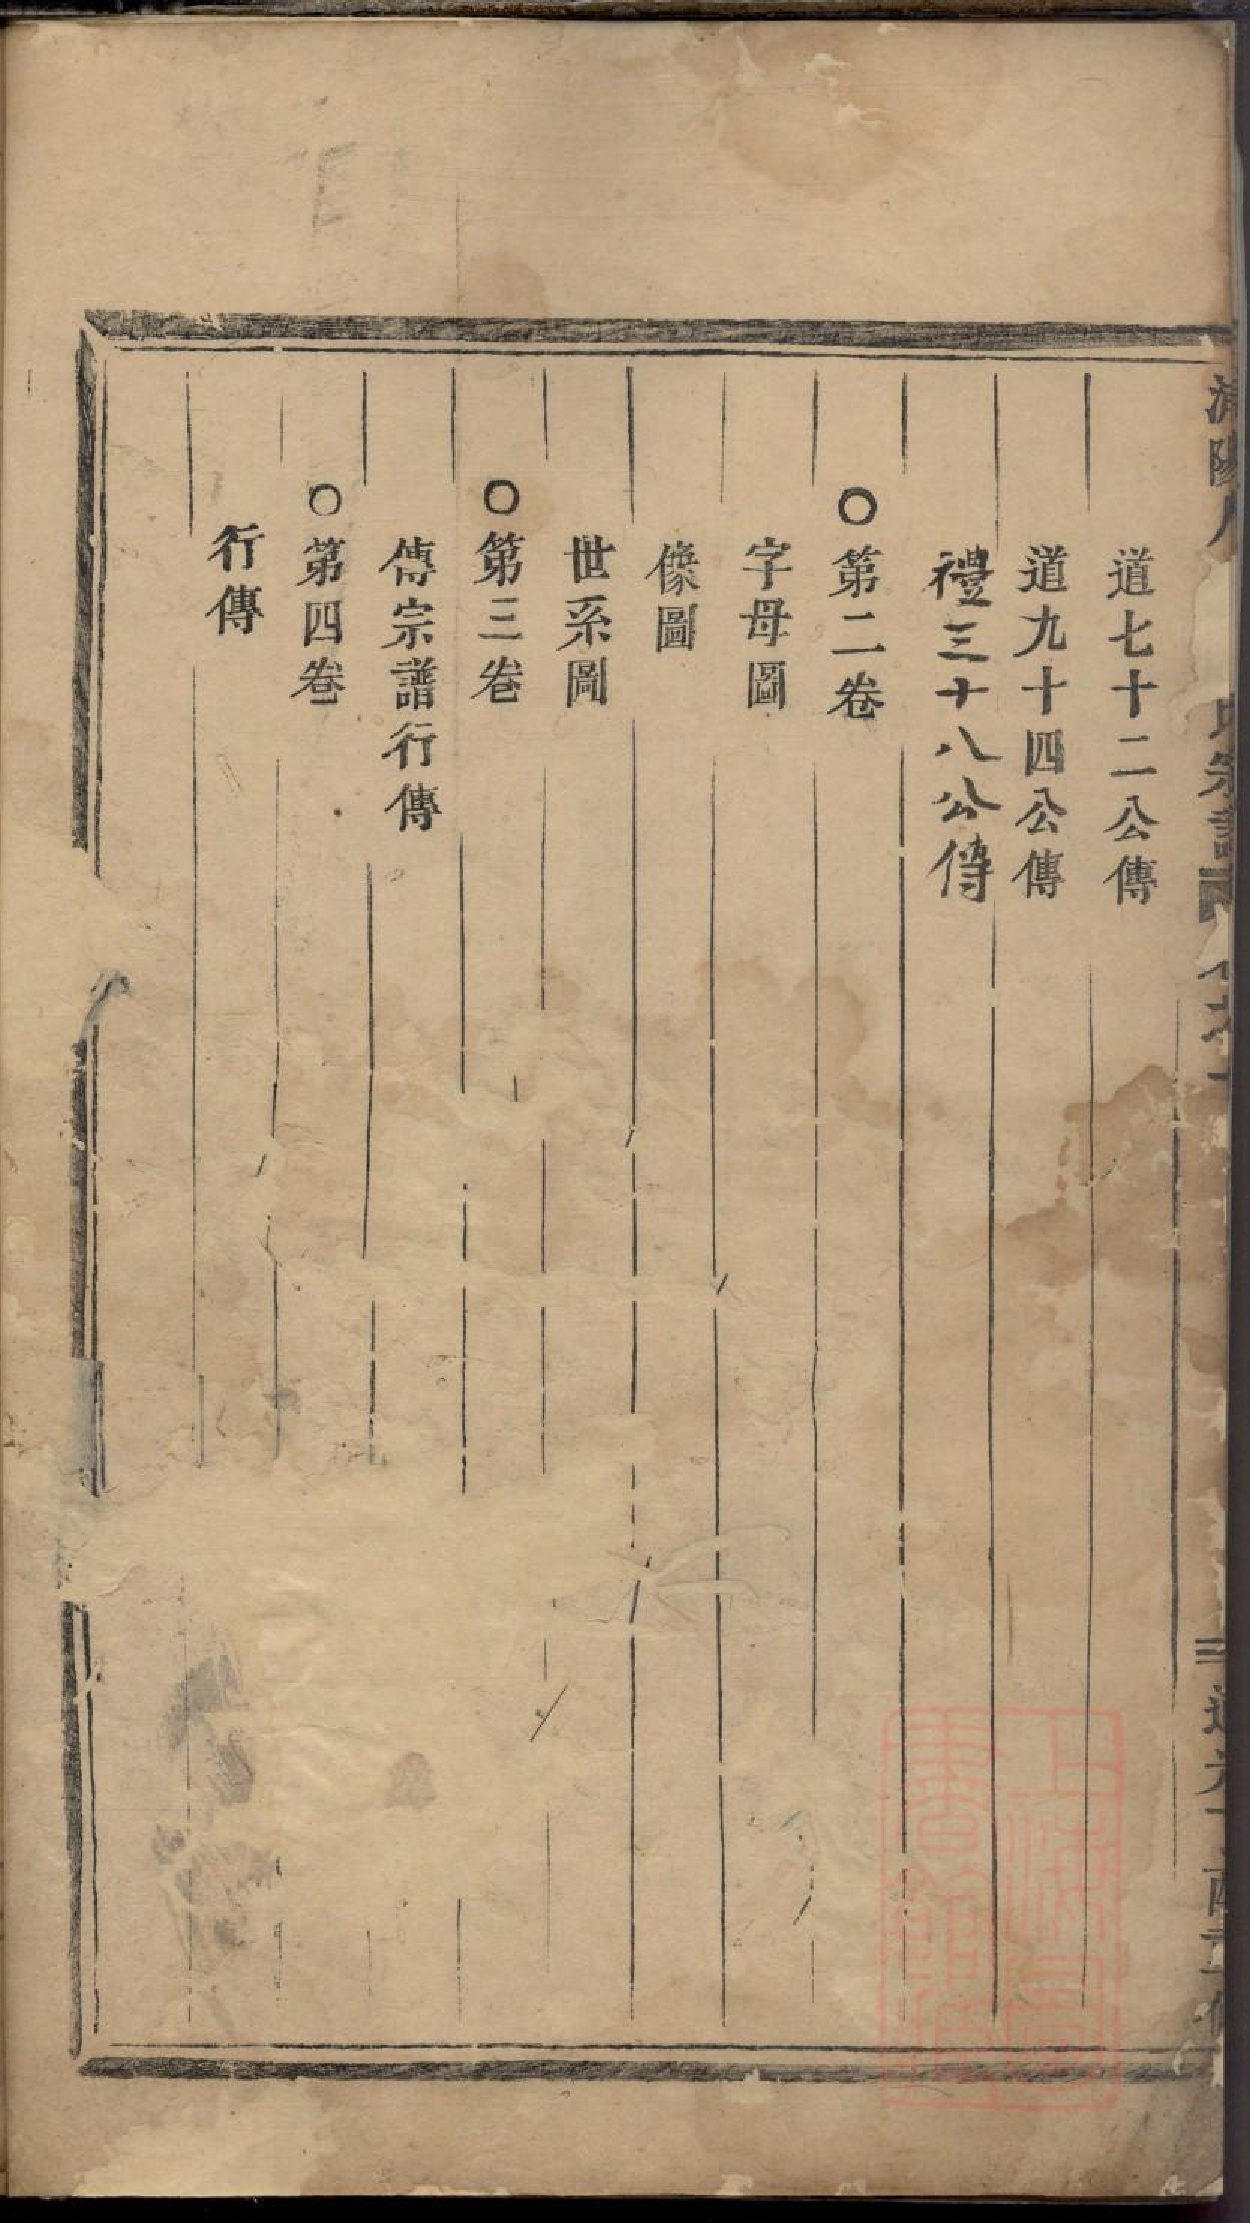 道七十二公傳
道九十四公傳
禮三十八公傳
○第二卷
字母圖
像圖
世系圖
○第三卷
傳宗譜行傳
○第四卷
行傳
上海圖書館藏